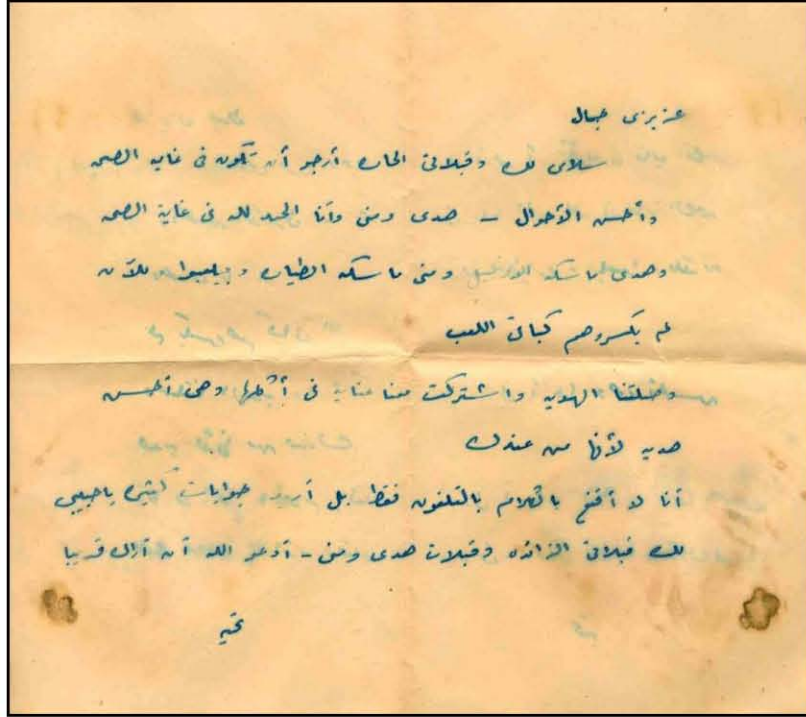 عزيزى جمال
سلامى لك وقبلاتى الحاره أرجو أن تكون فى غاية الصحه
وأحسن الأحوال – هدى ومنى وأنا الحمد لله فى غاية الصحه
وهدى ماسكه ومنى ماسكه الطياره وبيلعبوا للآن
لم يكسروهم كباقى اللعب
وصلتنا الهديه واشتركت معنا فى أكلها وهى أحسن
هديه لأنها من عندك
أنا لا أقنع بالكلام بالتلفون فقط بل أريد جوابات كثيره ياحبيبى
لك قبلاتى الزائده وقبلات هدى ومنى – أدعو الله أن أراك قريبا
تحيه